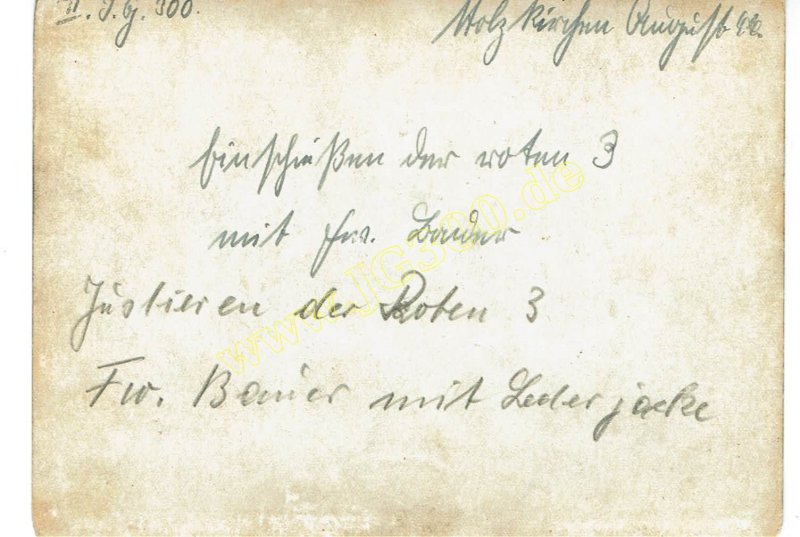 II. J.G. 300.
Holzkirchen August 44.
Einschießen der roten 3
mit Fw. Bauer
Justieren der Roten 3
Fw. Bauer mit Lederjacke
www.JG300.de